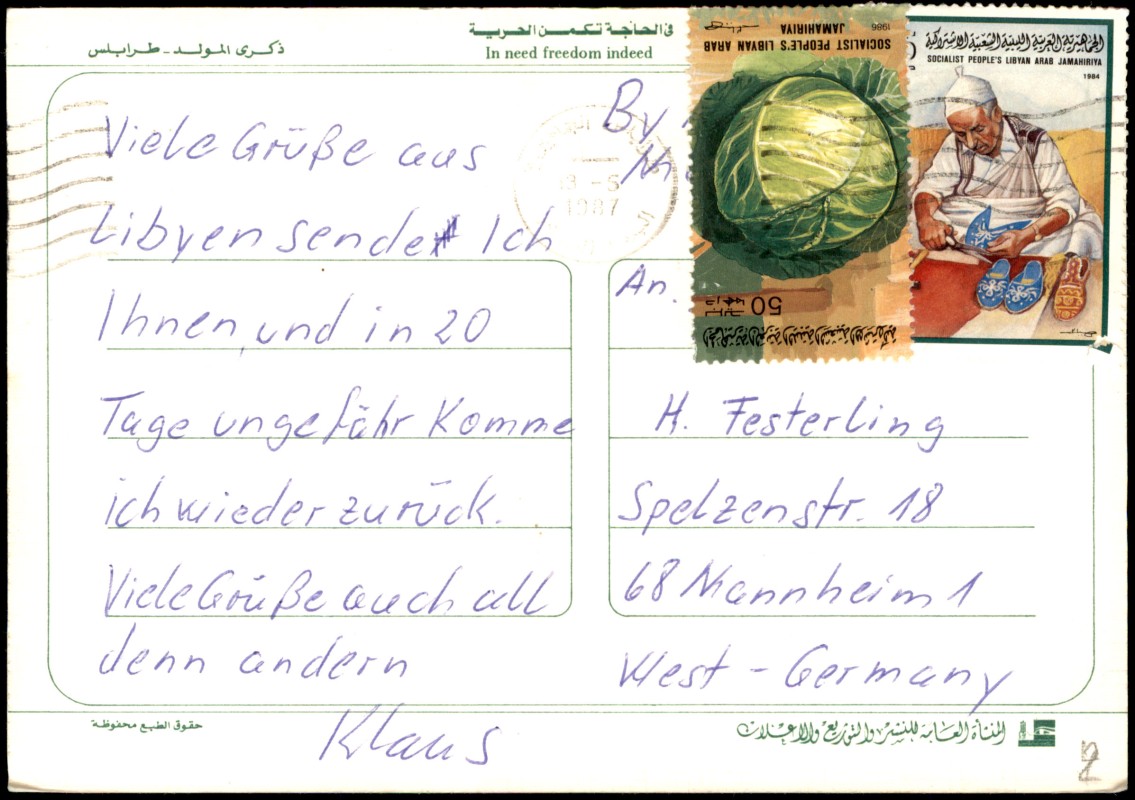 ذكرى المولد - طرابلس
في الحاجة تكمن الحرية
In need freedom indeed
Viele Grüße aus
Libyen sende Ich
Ihnen, und in 20
Tage ungefähr Komme
ich wieder zurück.
Viele Grüße auch all
denn andern
Klaus
By
An.
H. Festerling
Spelzenstr. 18
68 Mannheim 1
West - Germany
1986
SOCIALIST PEOPLE'S LIBYAN ARAB
JAMAHIRIYA
50
الجماهيرية العربية الليبية الشعبية الاشتراكية
الجماهيرية العربية الليبية الشعبية الاشتراكية
SOCIALIST PEOPLE'S LIBYAN ARAB JAMAHIRIYA
1984
13 -5
1987
حقوق الطبع محفوظة
المنشأة العامة للنشر والتوزيع والإعلان